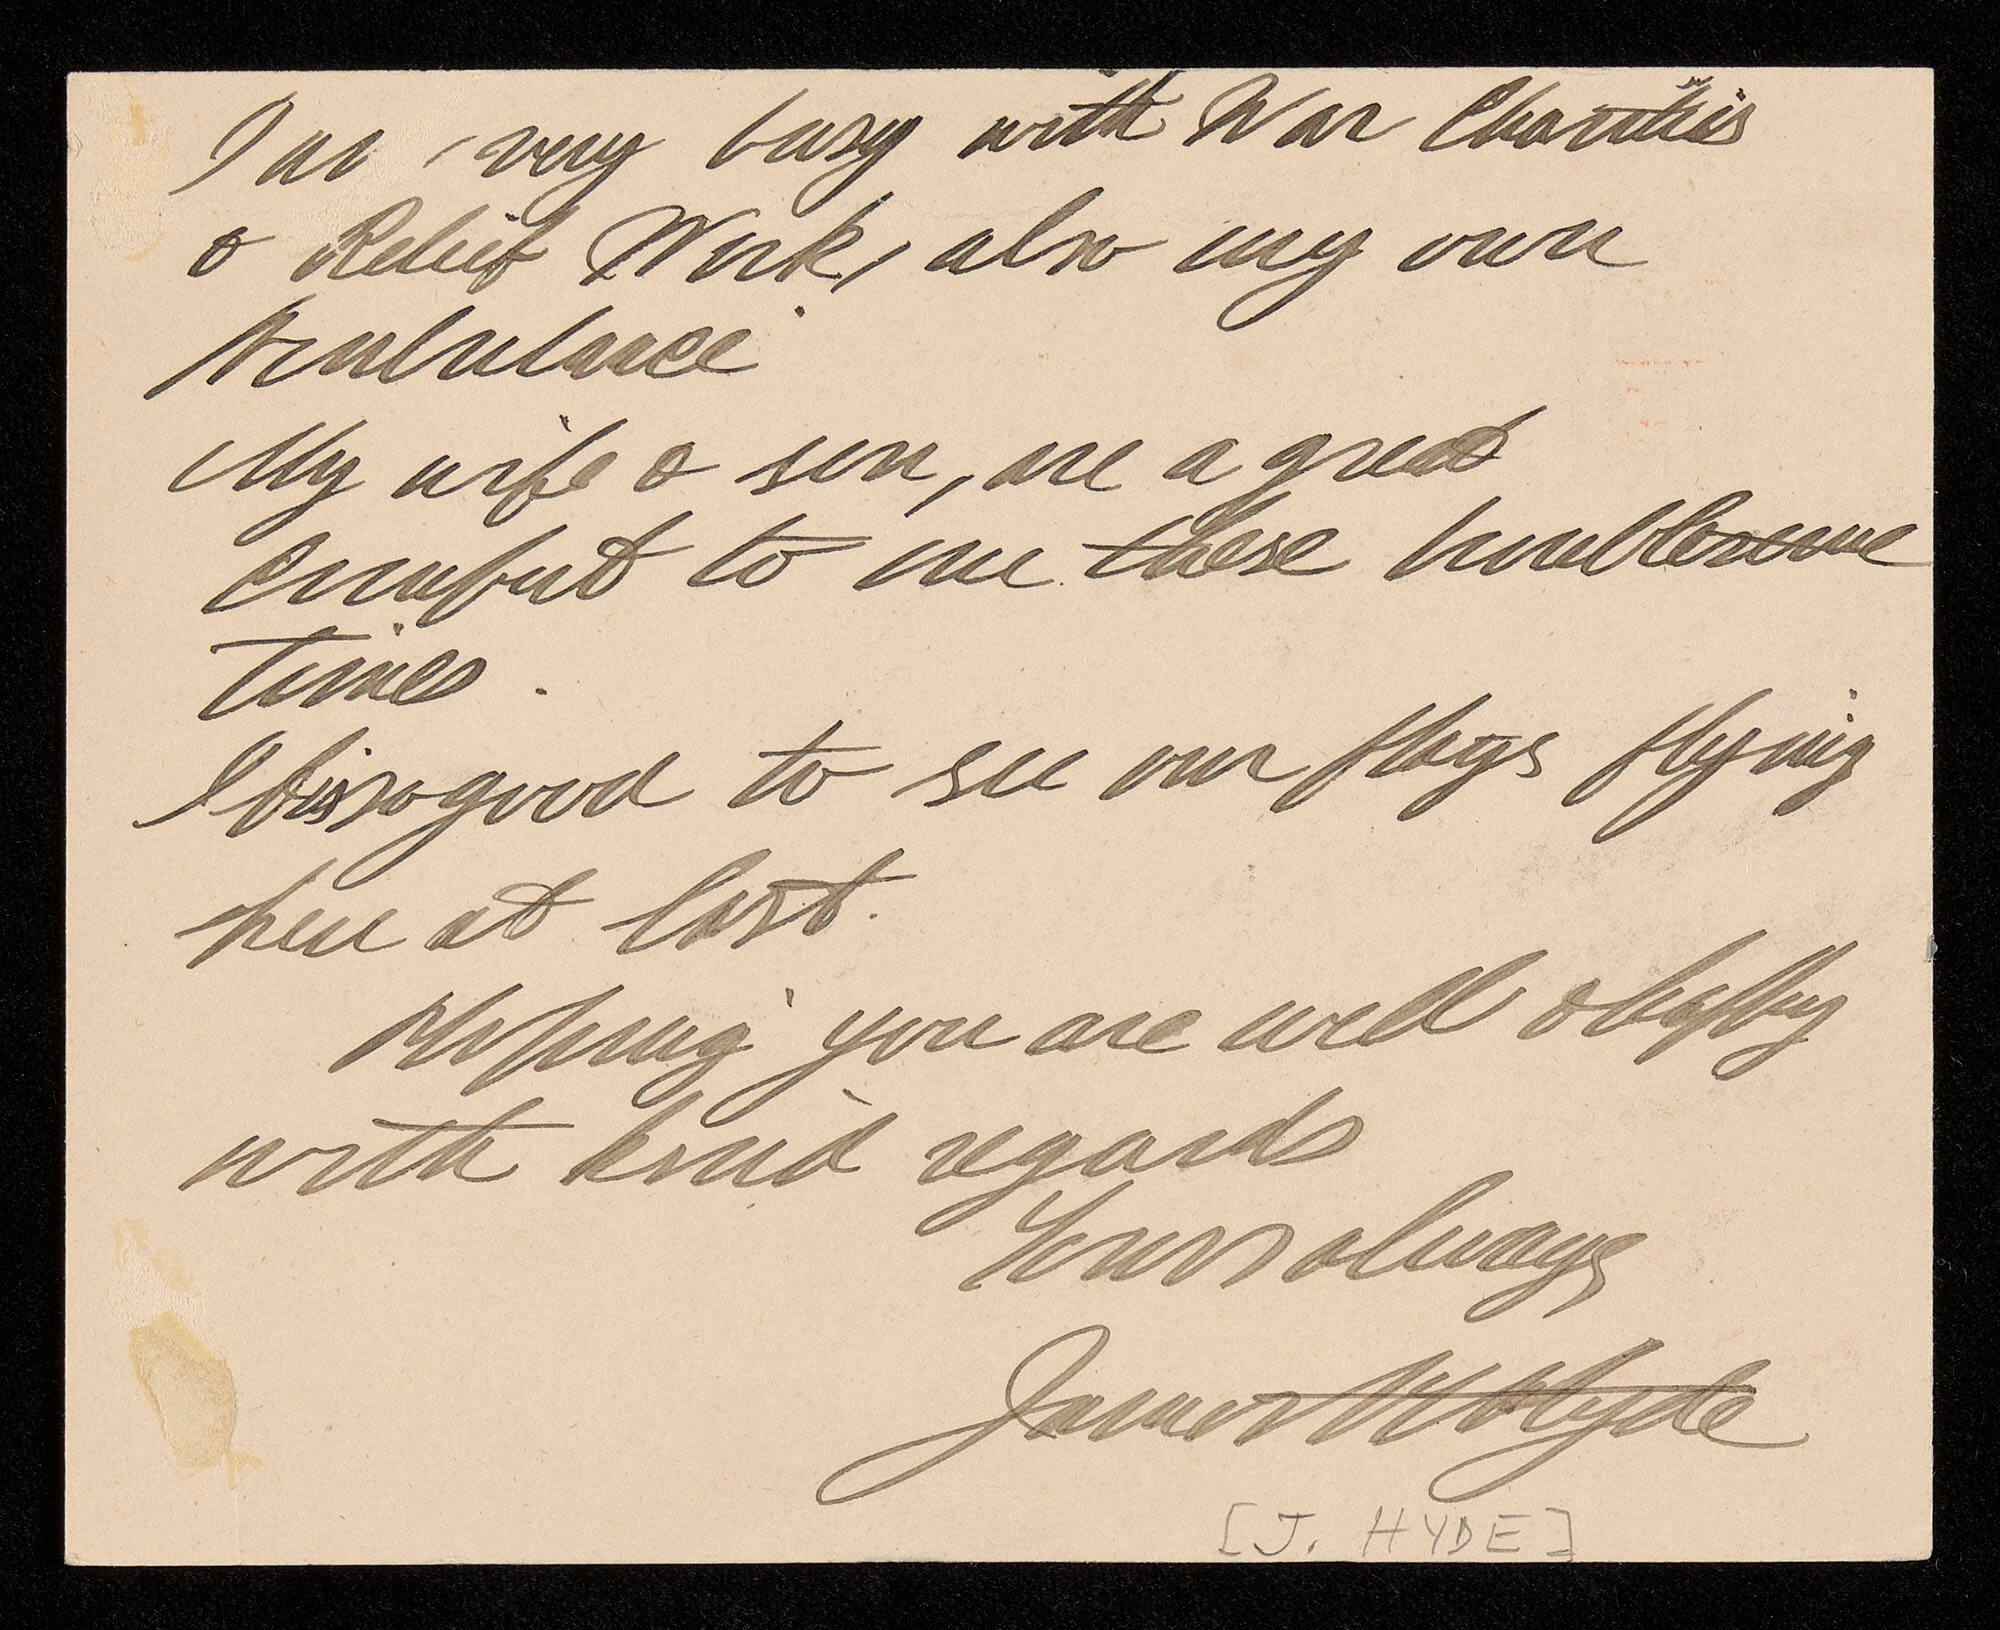 I am very busy with War Charities
& Relief Work, also my own
Ambulance
My wife & son, are a great
comfort to me these troublesome
times.
It is so good to see our flags flying
here at last.
Hoping you are well & happy
with kind regards
Yours always
James H Hyde
[J. HYDE]